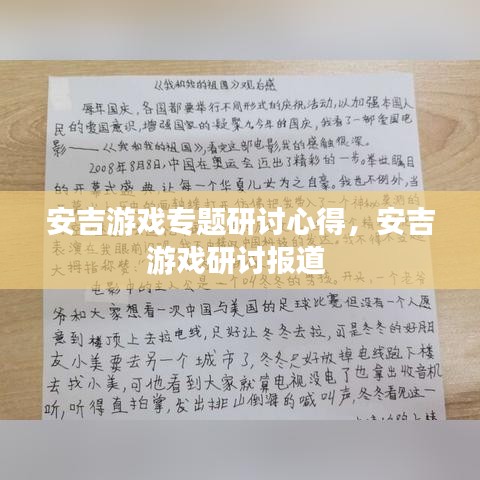 《我和我的祖国》观后感
每年国庆,各国都要举行不同形式的庆祝活动,以加强本国人
民的爱国意识,增强国家的凝聚力今年的国庆,我看了一部爱国电
影——《我和我的祖国》,看完这部电影,我的感触很深。
2008年8月8日,中国在奥运会迈出了精彩的一步。举世瞩目
的开幕式盛典,让每一个华夏儿女为之自豪。我也不例外,当
安吉游戏专题研讨心得，安吉
游戏研讨报道
表演在我眼前
大拇指称赞
电影中的主人公是一个叫冬冬的
爷和大家想看一次中国与美国的足球比赛但没有一个人愿
意到楼顶上去拉电线,只好让冬冬去拉,可是冬冬的好朋
友小美要去另一个城市了,冬冬只好放掉电线跑下楼
去找小美,可他看到大家就算电视没电了也拿出收音机
听,听得直拍掌,发出排山倒海的喊叫声,冬冬看见这一